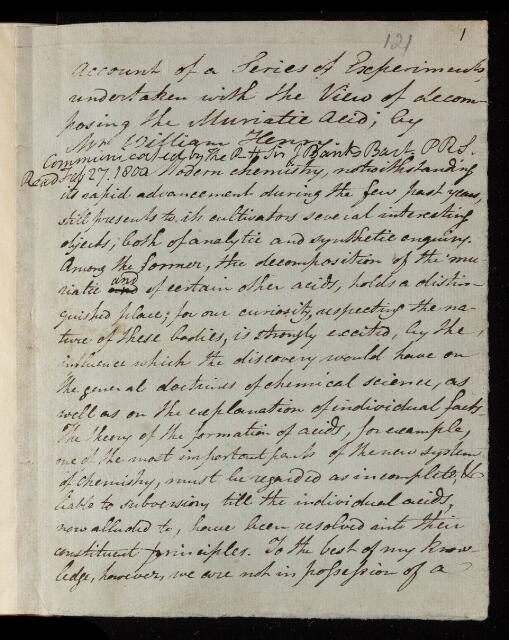 121
1
Account of a Series of Experiments,
undertaken with the View of decom-
posing the Muriatic Acid; by
Mr. William Henry
Communicated by the Rt. H. Sir J. Banks Bart. P.R.S.
Read Feb. 27. 1800 Modern chemistry, notwithstanding
its rapid advancement during the few past years,
still presents to its cultivators several interesting
objects, both of analytic and synthetic enquiry.
Among the former, the decomposition of the mu-
riatic and of certain other acids, holds a distin-
guished place; for our curiosity, respecting the na-
ture of these bodies, is strongly excited, by the
influence which the discovery would have on
the general doctrines of chemical science, as
well as on the explanation of individual facts.
The theory of the formation of acids, for example,
one of the most important parts of the new system
of chemistry, must be regarded as incomplete, &
liable to subversion, till the individual acids,
now alluded to, have been resolved into their
constituent principles. To the best of my know-
ledge, however, we are not in possession of a